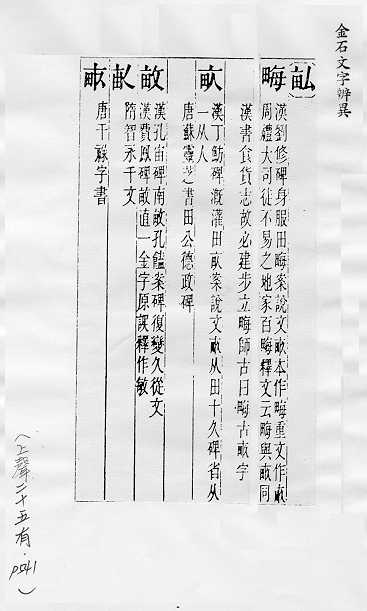 金石文字辨異
畮
漢劉修碑身服田畮案說文畝本作畮重文作畝
周禮大司徒不易之地家百畮釋文云畮與畝同
漢書食貨志故必建步立畮師古曰畮古畝字
漢丁魴碑溉灌田畝案說文畝从田十久碑省从
一从人
唐蘇靈芝書田公德政碑
漢孔宙碑南畝孔饁案碑復變久從文
漢費鳳碑畝直一金字原誤釋作敏
隋智永千文
唐干祿字書
(上聲二十五有．P541)